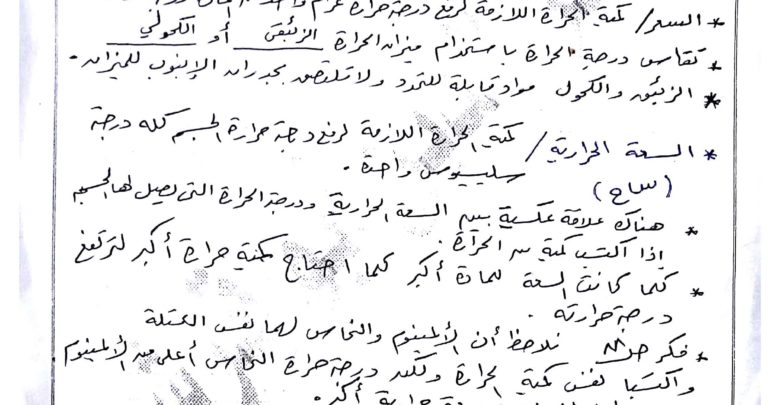 * السعر / كمية الحرارة اللازمة لرفع درجة حرارة غرام واحد
* تقاس درجة الحرارة باستخدام ميزان الحرارة الزئبقي أو الكحولي
* الزئبق والكحول مواد قابلة للتمدد ولا تلتصق بجدران الإنبوب للميزان .
* السعة الحرارية / كمية الحرارة اللازمة لرفع درجة حرارة الجسم كله درجة
سليسيوس واحدة .
(سا ح)
* هناك علاقة عكسية بين السعة الحرارية ودرجة الحرارة التي يصل لها الجسم
إذا اكتسب كمية من الحرارة .
* كلما كانت السعة للمادة أكبر كلما احتاج كمية حرارة أكبر لترتفع
درجة حرارته .
* فكر ص نلاحظ أن الألمنيوم والنحاس لهما نفس الكتلة
واكتسبا نفس كمية الحرارة ولكن درجة حرارة النحاس أعلى من الألمنيوم
حرارية أكبر .